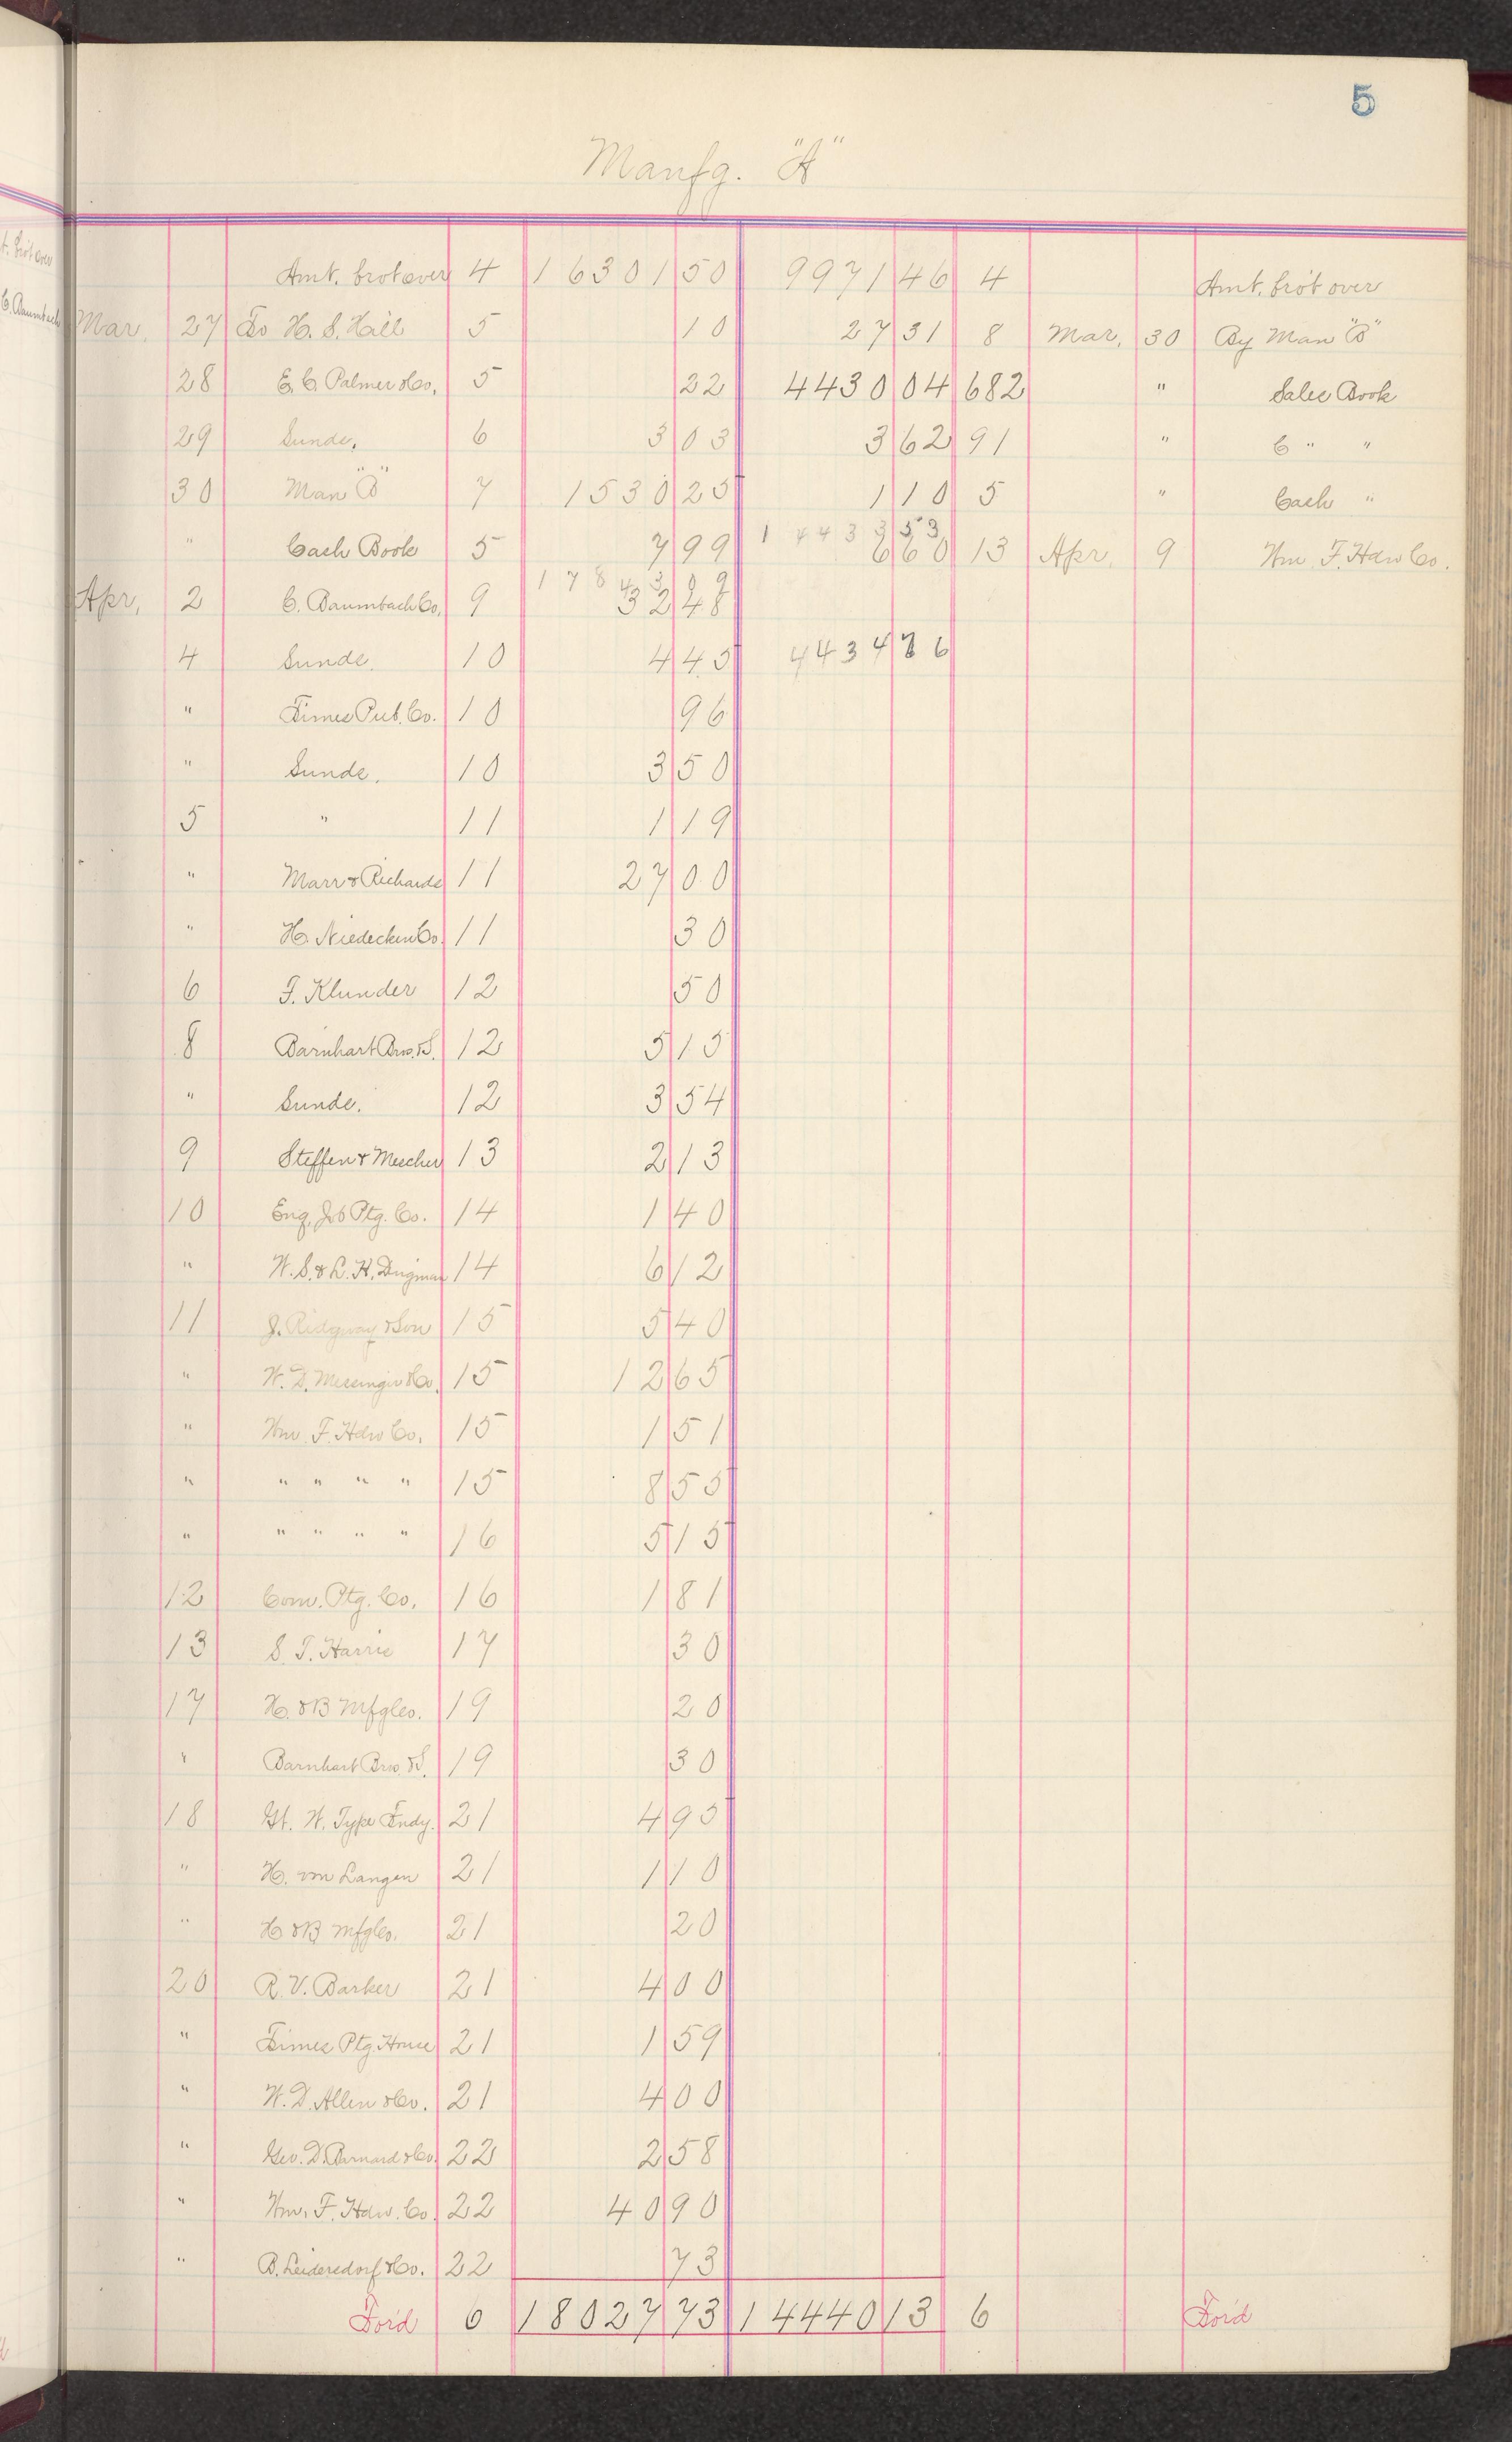 5
Manfg. "A"
Amt. brot over 4 16301 50 9971 46 4 Amt. bro't over
Mar. 27 To H. S. Hall 5 10 27 31 8 Mar. 30 By Man "B"
28 E. C. Palmer & Co. 5 22 4430 04 682 " Sales Book
29 Sunds. 6 3 03 3 62 91 " C " "
30 Man "B" 7 1530 25 1 10 5 " Cash "
" Cash Book 5 7 99 14433 53 6 60 13 Apr. 9 Wm. F. Hdw Co.
Apr. 2 C. Baumbach Co. 9 17843 09 32 48
4 Sunds. 10 4 45 4434 76
" Times Pub. Co. 10 96
" Sunds. 10 3 50
5 " 11 1 19
" Marr & Richards 11 27 00
" H. Niedecken Co. 11 30
6 F. Klunder 12 50
8 Barnhart Bros. & S. 12 5 15
" Sunds. 12 3 54
9 Steffen & Mescher 13 2 13
10 Eng. Job Ptg. Co. 14 1 40
" W. S. & L. H. 14 6 12
11 J. Ridgway & Son 15 5 40
" W. D. Messinger & Co. 15 12 65
" Wm. F. Hdw Co. 15 1 51
" " " " " 15 8 55
" " " " " 16 5 15
12 Com. Ptg. Co. 16 1 81
13 S. T. Harris 17 30
17 H. & B Mfg Co. 19 20
" Barnhart Bros. & S. 19 30
18 Gt. W. Type Fndy. 21 4 95
" H. von Langen 21 1 10
" H & B Mfg Co. 21 20
20 R. V. Barker 21 4 00
" Times Ptg. House 21 1 59
" W. D. Allen & Co. 21 4 00
" Geo. D. Barnard & Co. 22 2 58
" Wm. F. Hdw. Co. 22 40 90
" B. Leidersdorf & Co. 22 73
For'd 6 18027 73 14440 13 6 For'd